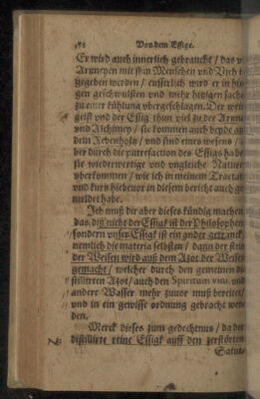 Von dem Essige.
Er wird auch innerlich gebraucht / das
Artzneyen mit ihm Menschen und Vieh
gegeben werden / eusserlich wird er in
gen geschwulsten und mehr hitzigen sache
zu einer kühlung übergeschlagen. Der wein
geist und der Essig thun viel zu der Artzne
und Alchimey / sie kommen auch beyde auß
dem Rebenholtz / und sind eines wesens /
ber durch die putrefaction des Essigs haben
sie wiederwertige und ungleiche Naturen
überkommen / wie ich in meinem Tractat
und kurtz hiebevor in diesem bericht auch ge
meldet habe.
Ich muß dir aber dieses kündig machen
das diß nicht der Essig ist der Philosophen
sondern unser Essig ist ein ander getranck
nemlich die materia selbsten / dann der stein
der Weisen wird auß dem Azot der Weisen
gemacht / welcher durch den gemeinen di
stillirten Azot / auch den Spiritum vini und
andere Wasser mehr zuvor muß bereitet /
und in ein gewisse ordnung gebracht wer
den.
Merck dieses zum gedechtnus / da der
distillirte reine Essigk auff den zerstörten
Satur-